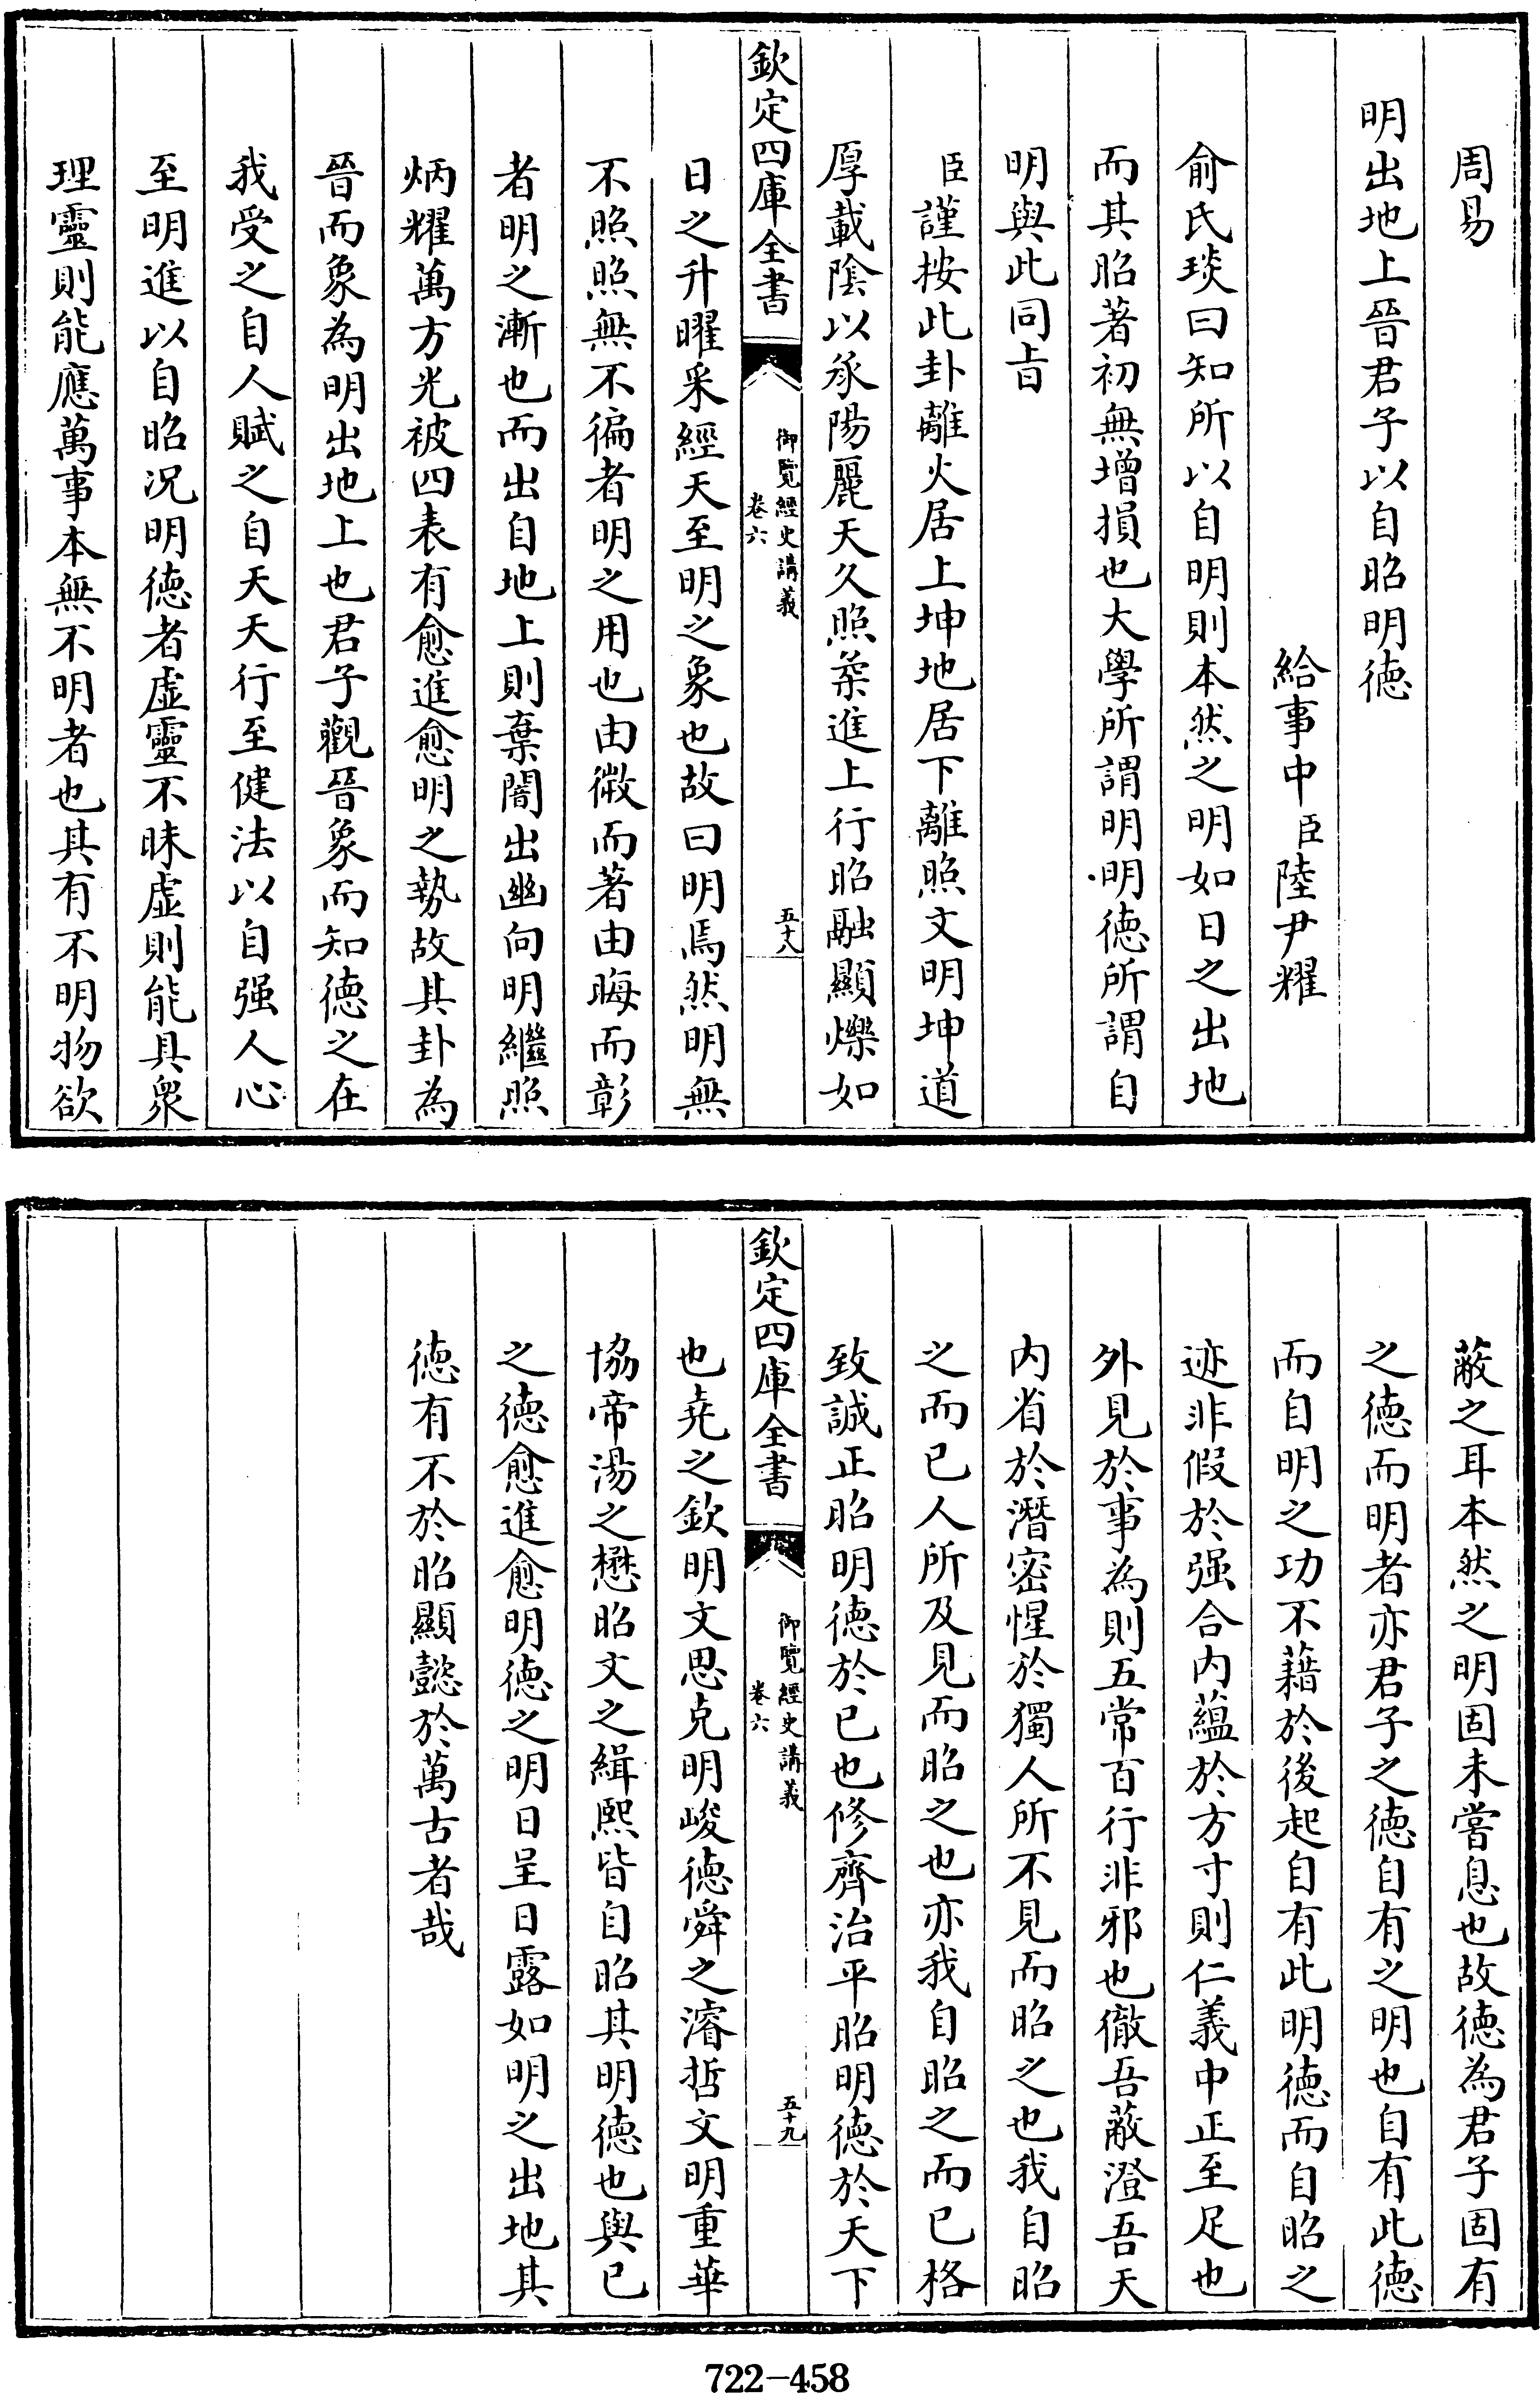 周易
明出地上晉君子以自昭明德
給事中臣陸尹耀
俞氏琰曰知所以自明則本然之明如日之出地
而其昭著初無增損也大學所謂明明德所謂自
明與此同旨
臣謹按此卦離火居上坤地居下離照文明坤道
厚載陰以承陽麗天久照柔進上行昭融顯爍如
欽定四庫全書
御覽經史講義
卷六
五十八
日之升曜采經天至明之象也故曰明焉然明無
不照照無不徧者明之用也由微而著由晦而彰
者明之漸也而出自地上則棄闇出幽向明繼照
炳耀萬方光被四表有愈進愈明之勢故其卦為
晉而象為明出地上也君子觀晉象而知德之在
我受之自人賦之自天天行至健法以自强人心
至明進以自昭况明德者虛靈不昧虛則能具衆
理靈則能應萬事本無不明者也其有不明物欲
蔽之耳本然之明固未嘗息也故德為君子固有
之德而明者亦君子之德自有之明也自有此德
而自明之功不藉於後起自有此明德而自昭之
迹非假於强合内蘊於方寸則仁義中正至足也
外見於事為則五常百行非邪也徹吾蔽澄吾天
内省於潛密惺於獨人所不見而昭之也我自昭
之而已人所及見而昭之也亦我自昭之而已格
致誠正昭明德於已也修齊治平昭明德於天下
欽定四庫全書
御覽經史講義
卷六
五十九
也堯之欽明文思克明峻德舜之濬哲文明重華
協帝湯之懋昭文之緝熙皆自昭其明德也與已
之德愈進愈明德之明日呈日露如明之出地其
德有不於昭顯懿於萬古者哉
722-458